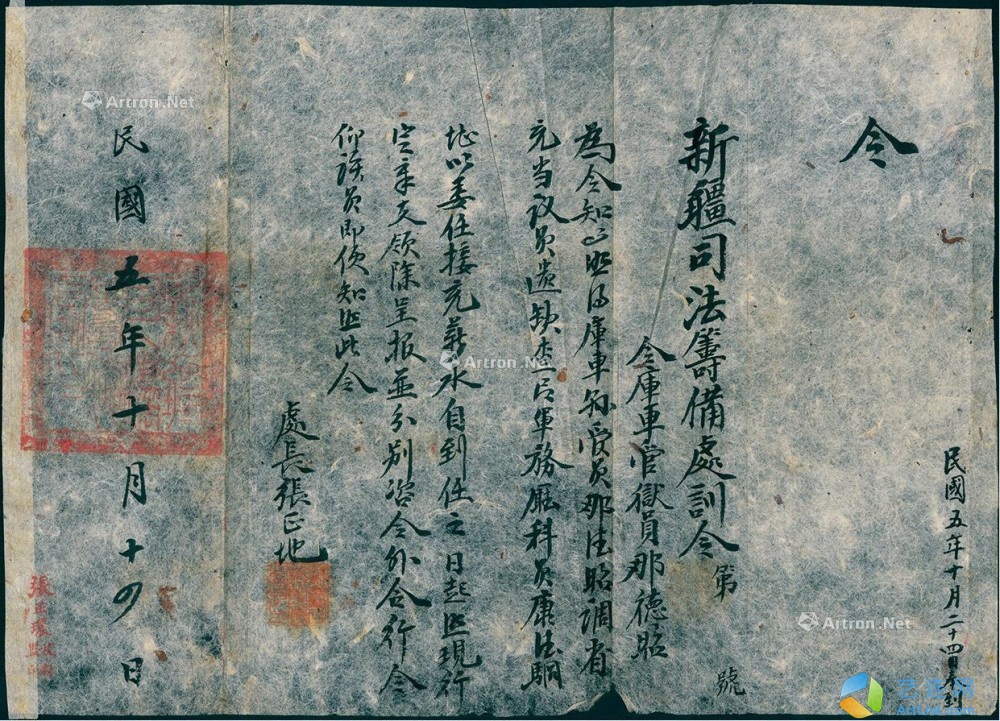 民國五年十月二十四日奉到
令
新疆司法籌備處訓令 第 號
令庫車管獄員那德昭
為令知事照得庫車县管員那德昭調省
充当议员遺缺查有軍務厫科員康
堪以委任接充薪水自到任之日起照現行
定章支领除呈报並分别咨令外合行令
仰该員即便知照此令
處長張正地
民國五年十月十四日
Artron.Net
Artron.Net
Artron.Net
Artron.Net
Artron.Net